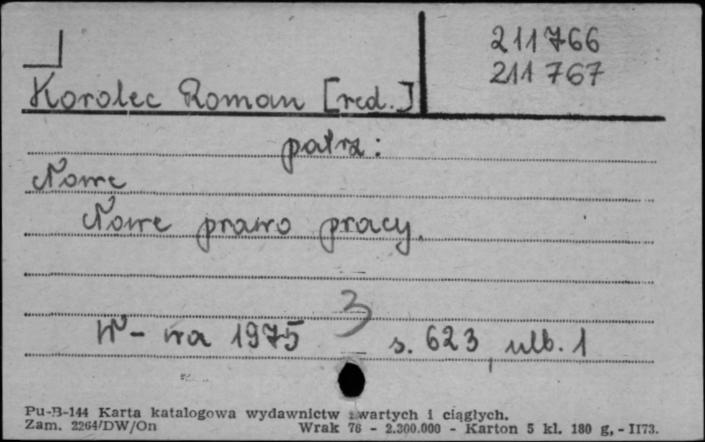 211766
211767
Korolec Roman [red.]
patrz:
Nowe
Nowe prawo pracy.
W-wa 1975 3 s. 623, ulb. 1
Pu-B-144 Karta katalogowa wydawnictw zwartych i ciągłych.
Zam. 2264/DW/On Wrak 76 - 2.300.000 - Karton 5 kl. 180 g, - II73.